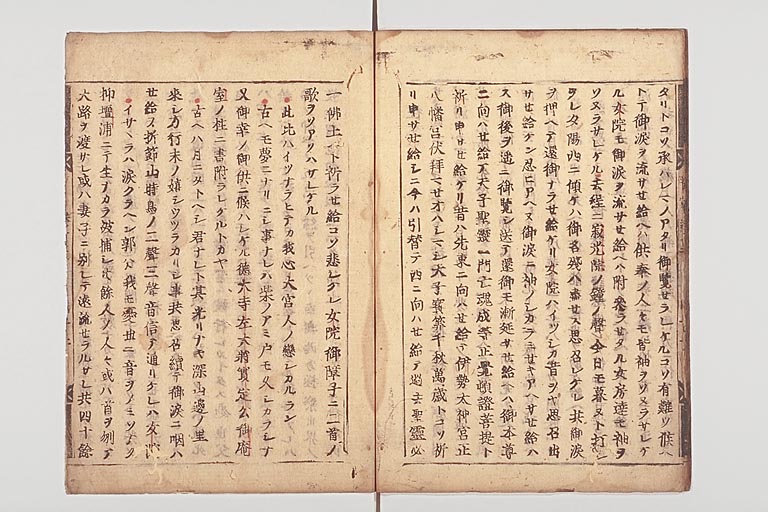 タリトコソ承ハレマノアタリ御覧セラレケルコソ有難ウ候ヘ
トテ御涙ヲ流サセ給ヘハ供奉ノ人々モ皆袖ヲソヌラサレケ
ル女院モ御涙ヲ流サセ給ヘハ附參ラセタル女房達モ袖ヲ
ソヌラサレケル去程ニ寂光院ノ鐘ノ聲今日モ暮ヌト打
ラレタ陽西ニ傾ケハ御名残ハ盡せス思召レケレ共御涙
ヲ押ヘテ還御ナラせ給ケリ女院ハイツシカ昔ヲヤ思召出
サせ給ケン忍ヒアヘヌ御涙ニ袖ノシカラミせキアヘサせ給ハ
ス御後ヲ遥ニ御覧シ送テ還御モ漸延サせ給ヘハ御本尊
ニ向ハせ給テ天子聖靈一門亡魂成等正覺頓證菩提ト
祈リ申サせ給ケリ昔ハ先東ニ向ハせ給テ伊勢太神宮正
八幡宮伏拜ミせオハシマシ天子寳算千秋萬歳トコソ祈
リ申サせ給シニ今ハ引替テ西ニ向ハせ給テ過去聖靈必
一佛土ヘト祈ラせ給コソ悲シケレ女院御障子ニ二首ノ
歌ヲソアソハサレケル
此比ハイツナラヒテカ我心大宮人ノ戀シカルラン
古ヘモ夢ニナリニシ事ナレハ柴ノアミ戸モ久シカラシナ
又御幸ノ御供ニ候ハレケル徳大寺左大將實定公御庵
室ノ柱ニ書附ラレケルトカヤ
古ヘハ月ニタトヘシ君ナレト其光リナキ深山邊ノ里
來シ方行末ノ嬉シウツラカリシ事共思召續テ御涙ニ咽ハ
せ給ス折節山時鳥ノ二聲三聲音信テ通リケレハ女院
イサヽラハ涙クラヘン郭公我モ憂世ニ音ヲノミソナク
抑壇浦ニテ生ナカラ被捕シ餘人ノ人々或ハ首ヲ刎テ
大路ヲ渡サレ或ハ妻子ニ別レテ遠流せラルサレ共四十餘